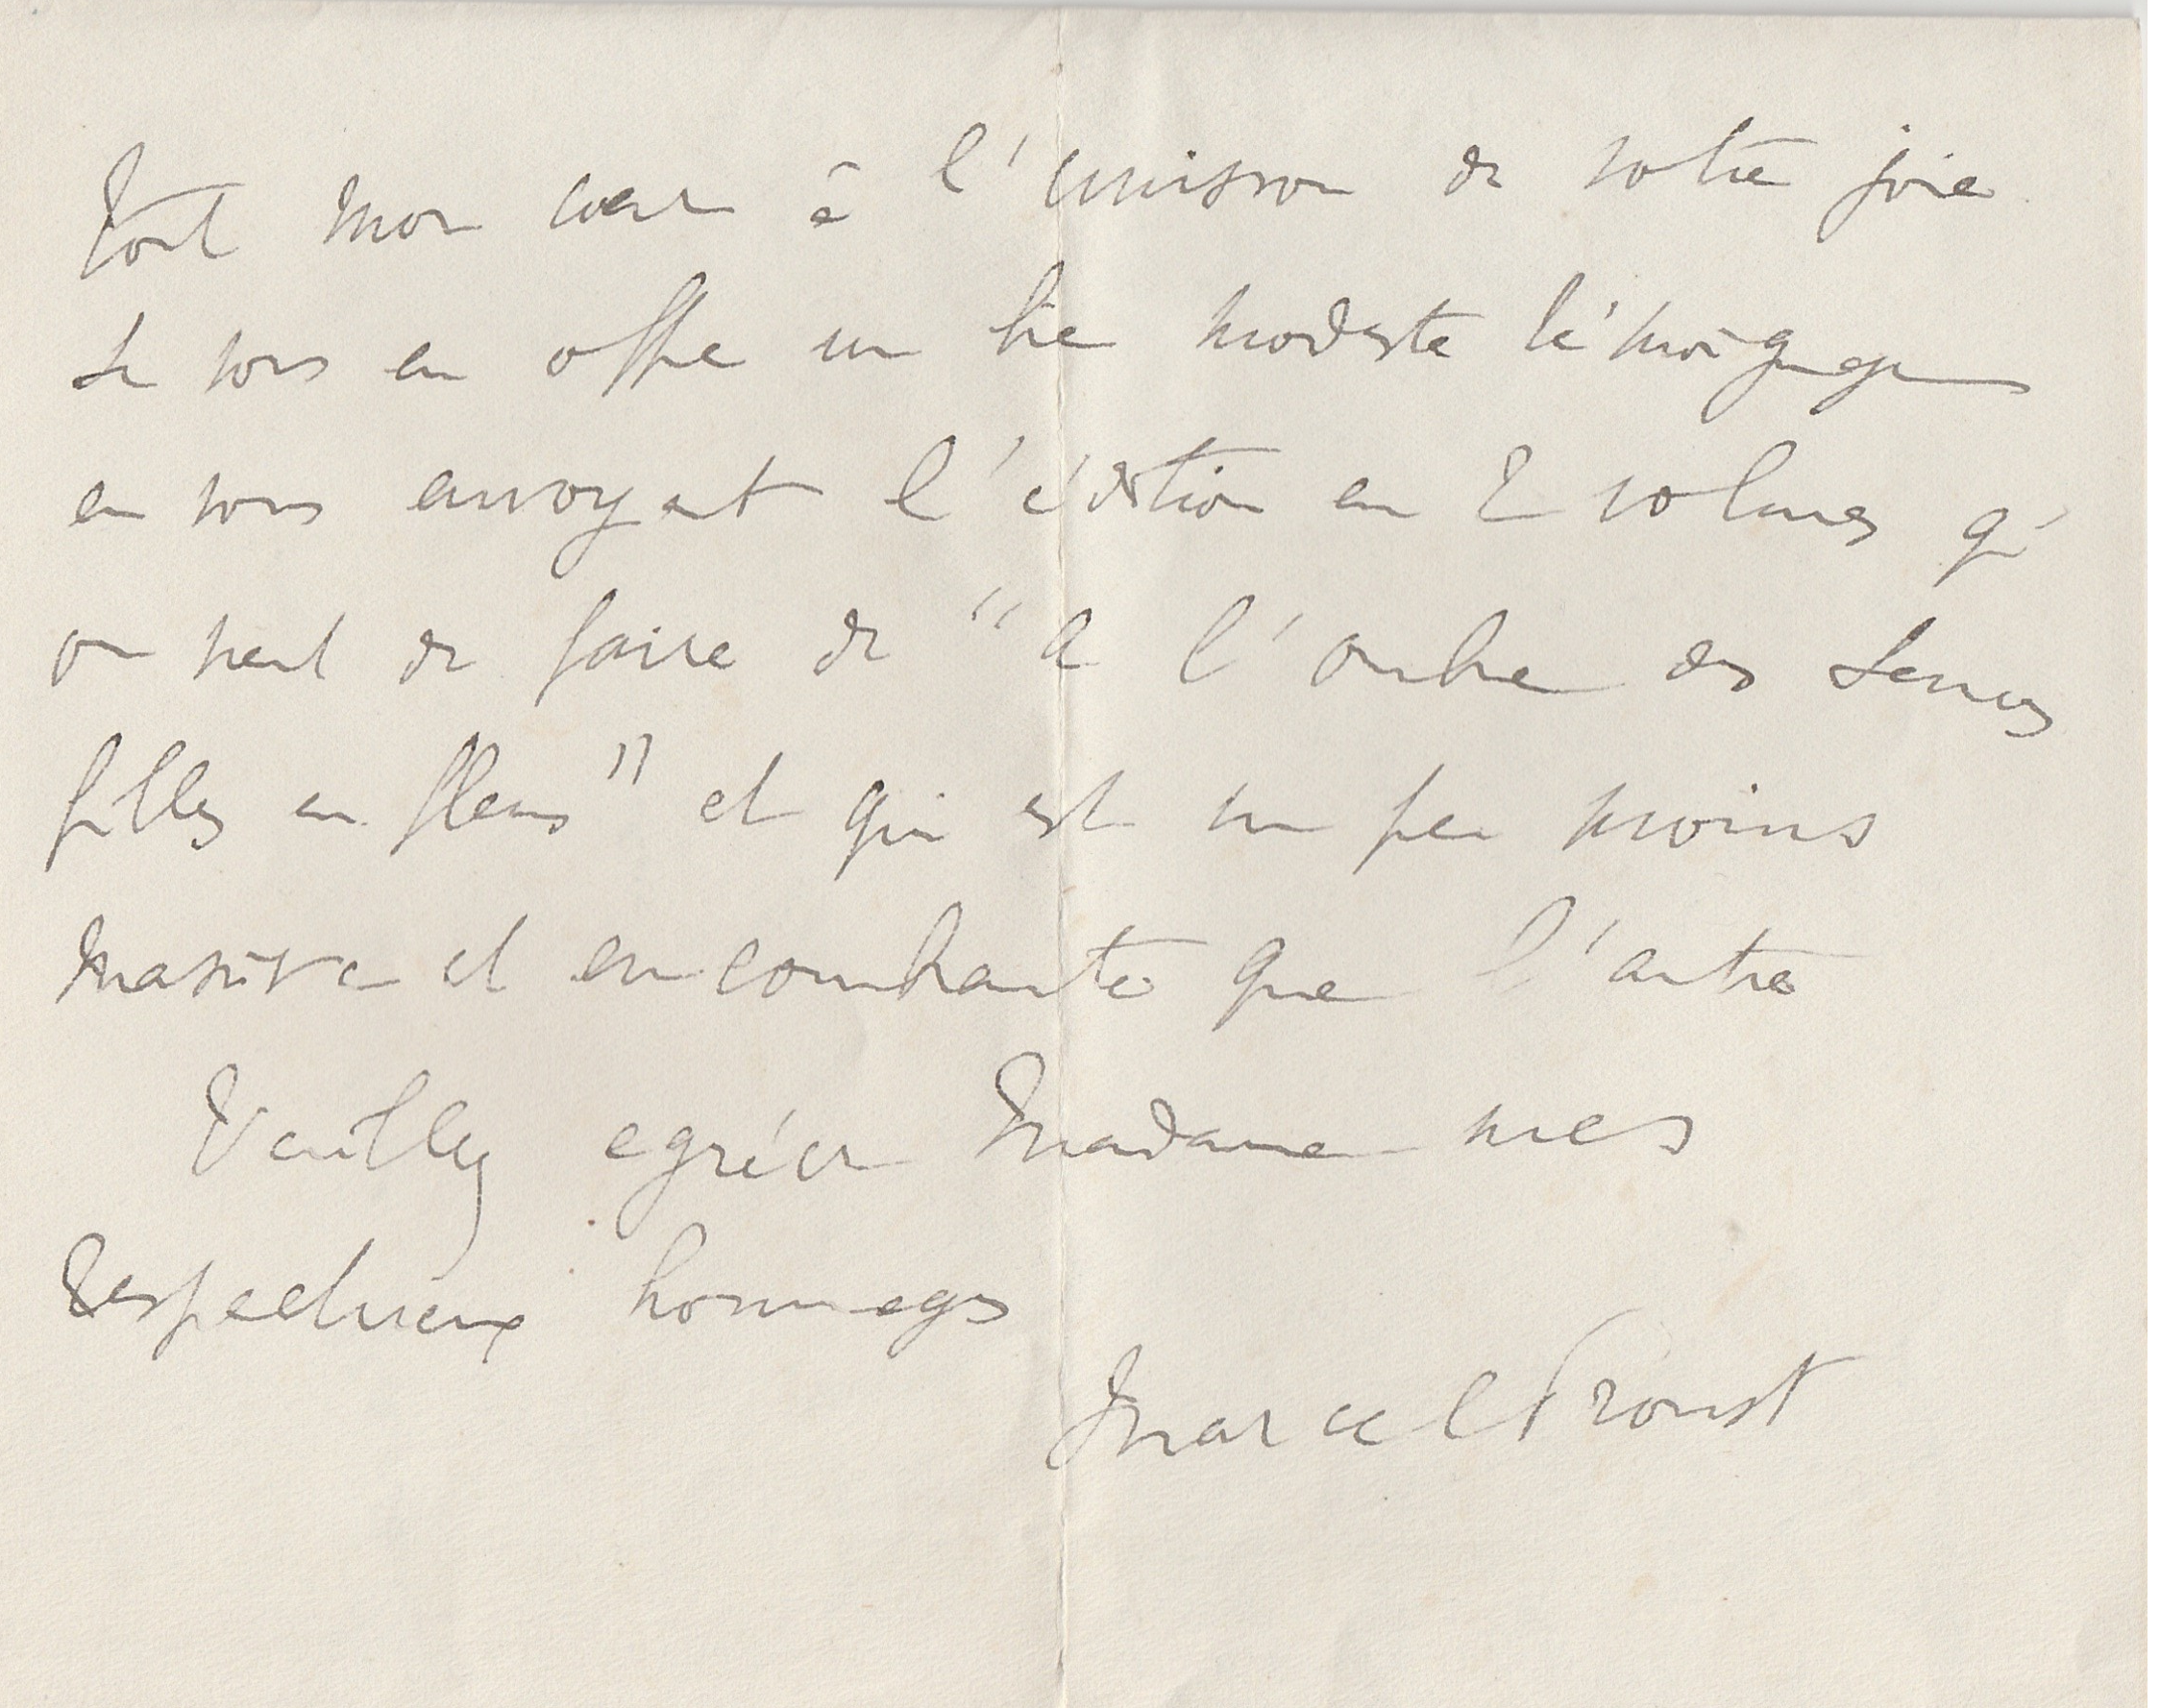 tout mon cœur à l'unisson de votre joie
Je vous en offre un bien modeste témoignage
en vous envoyant l'édition en 2 volumes qu'
on vient de faire de "A l'ombre des Jeunes
filles en fleurs" et qui est un peu moins
massive et encombrante que l'autre
Veuillez agréer Madame mes
respectueux hommages
Marcel Proust